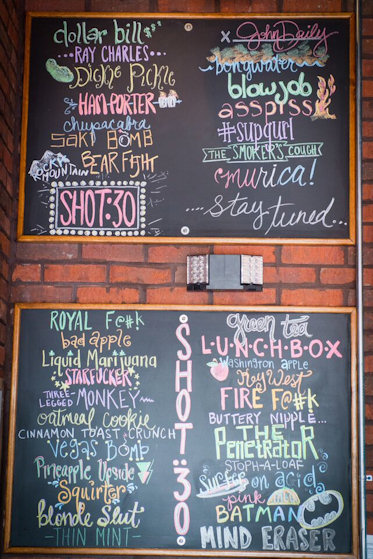 dollar bill's
RAY CHARLES
Dickie Pickle
HAM-PORTER
chupacabra
SAKI BOMB
BEAR FIGHT
ROCKY MOUNTAIN
SHOT:30
John Daily
bongwater
blowjob
asspiss
#supgurl
THE "SMOKERS" COUGH
'murica!
...Stay tuned...
ROYAL F@#K
bad apple
Liquid Marijuana
STARFUCKER
THREE-LEGGED-MONKEY
oatmeal cookie
CINNAMON TOAST CRUNCH
Vegas Bomb
Pineapple Upside
Squirter
blonde slut
-THIN MINT-
SHOT:30
green tea
L·U·N·C·H·B·O·X
Washington apple
Key West
FIRE F@#K
BUTTERY NIPPLE...
THE Penetrator
STOPH-A-LOAF
surfer on acid
pink taco
BATMAN
MIND ERASER